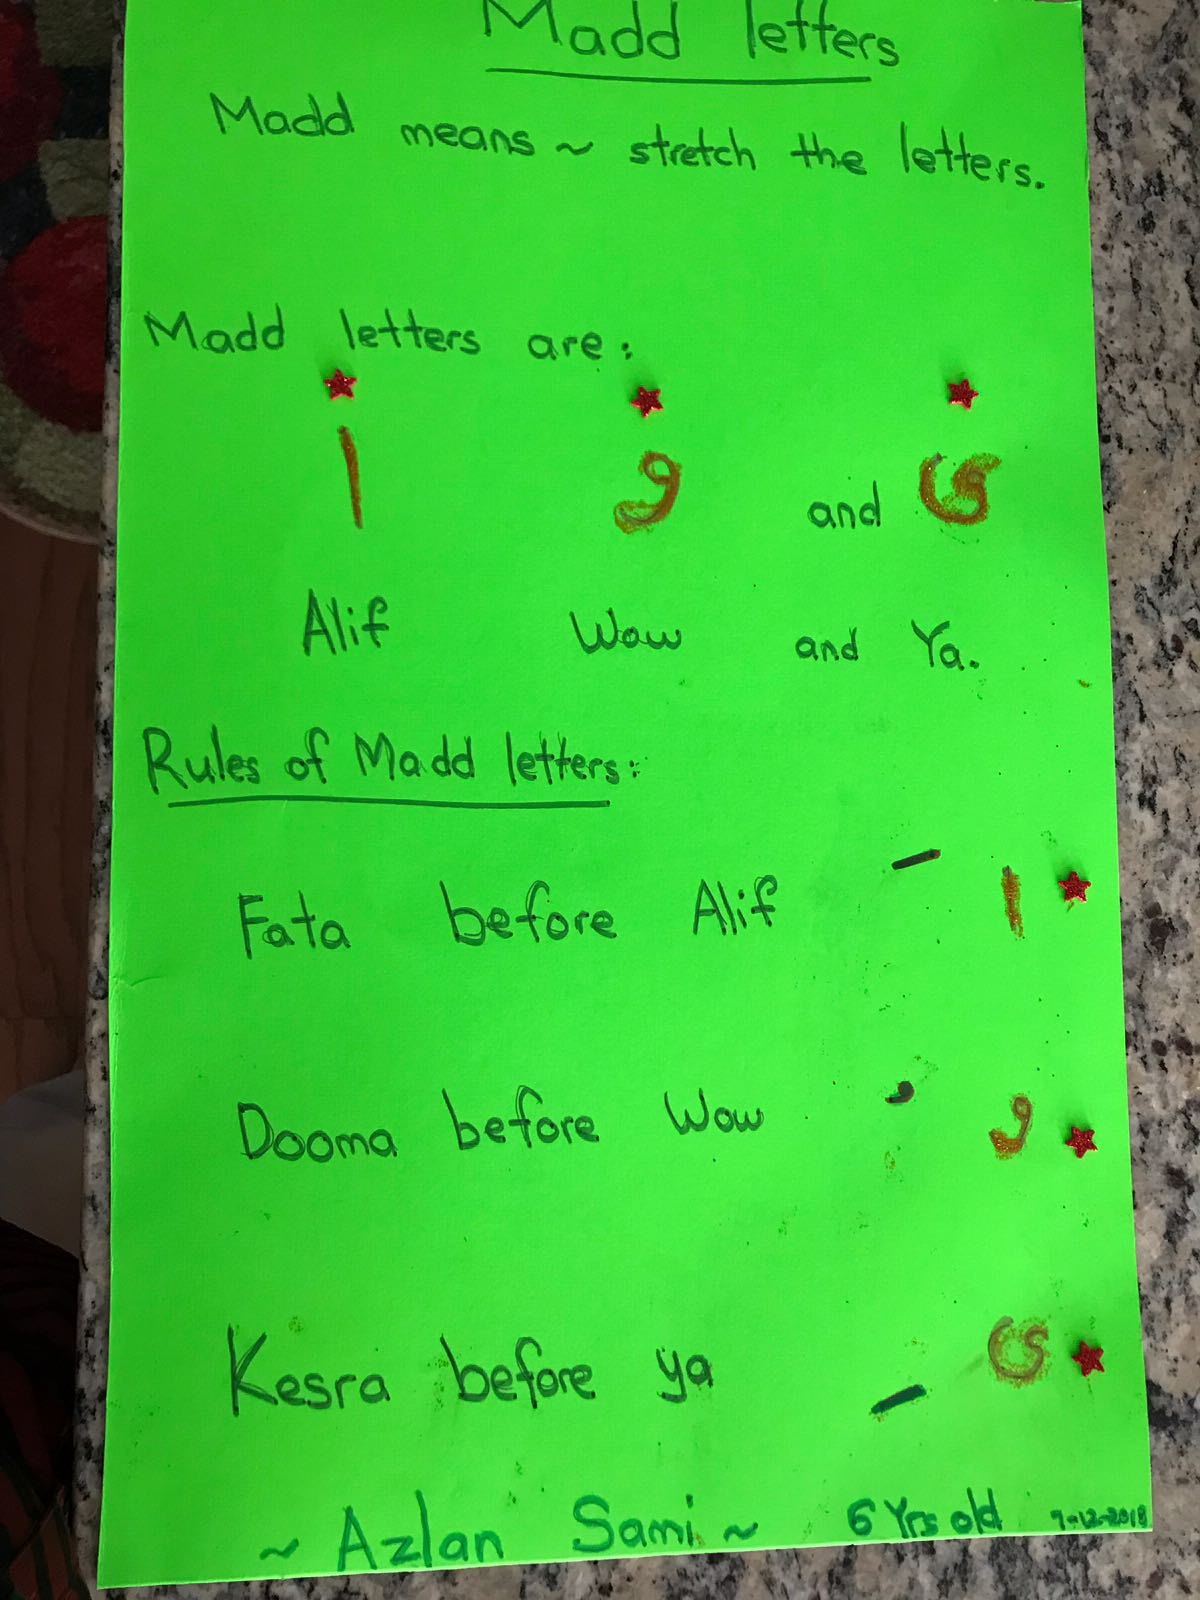 Madd letters
Madd means ~ stretch the letters.
Madd letters are:
ا و and ى
Alif Wow and Ya.
Rules of Madd letters:
Fata before Alif َ ا
Dooma before Wow ُ و
Kesra before ya ِ ى
~ Azlan Sami ~ 6 Yrs old 7-12-2018